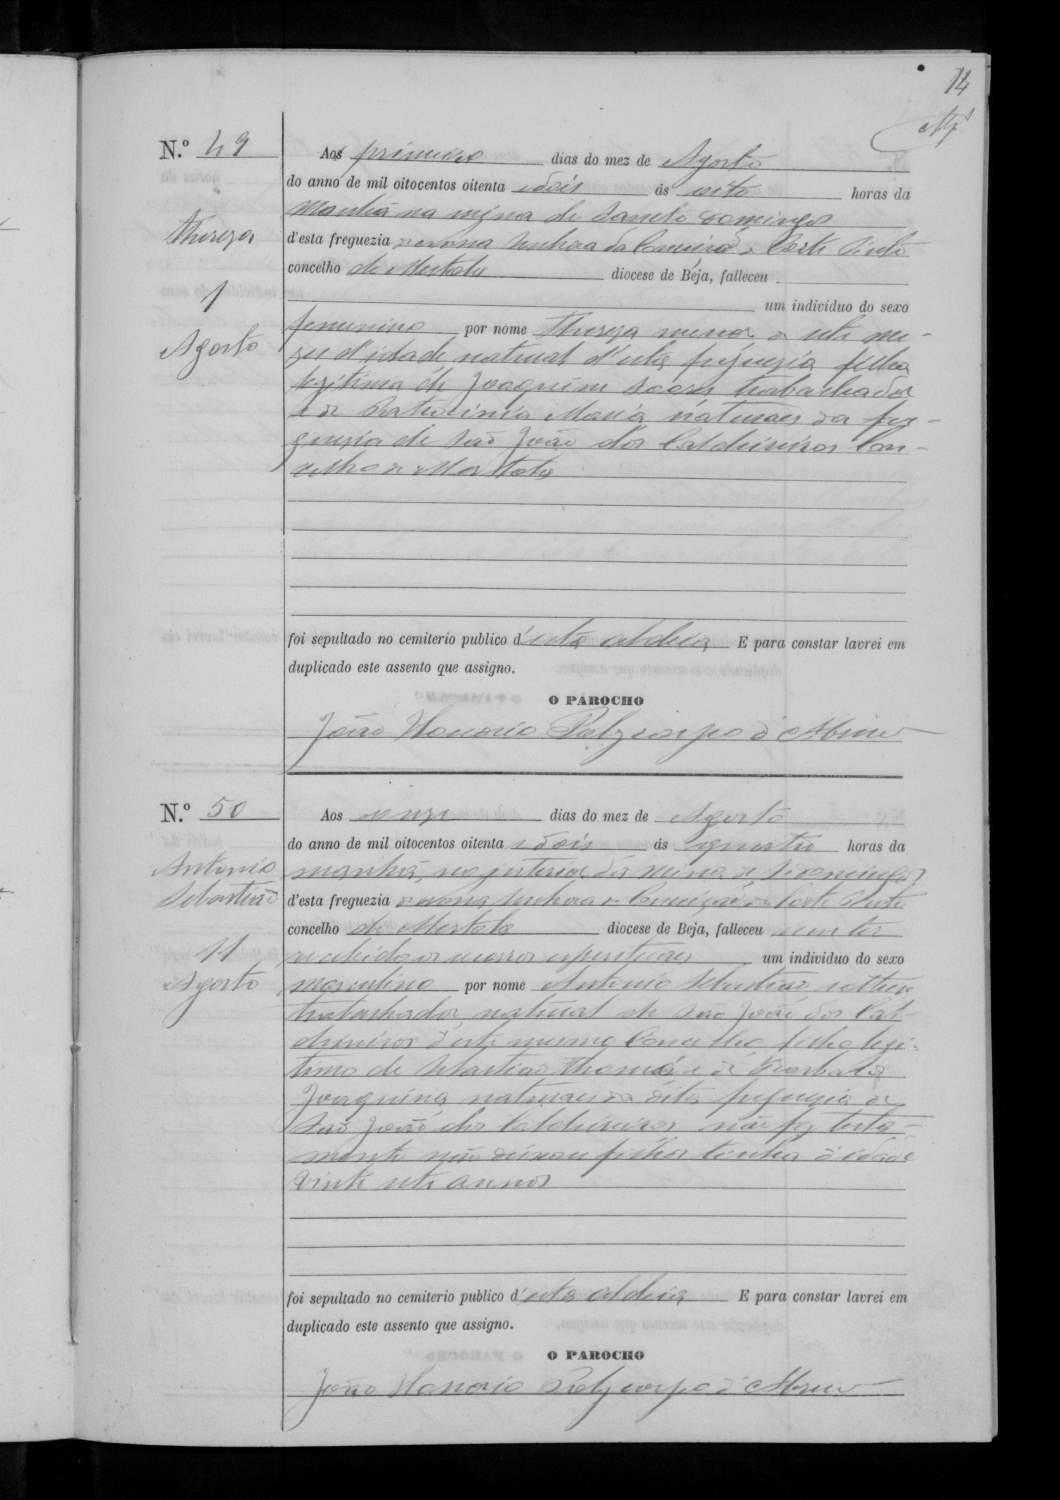 14
N.º 49
Thereza
1
Agosto
Aos primeiro dias do mez de Agosto
do anno de mil oitocentos oitenta e dois ás oito horas da
manhã na mina de Sancto Domingos
d'esta freguezia de Nossa Senhora da Conceição da Corte Pinto
concelho de Mertola diocese de Béja, falleceu
um individuo do sexo
femenino por nome Thereza menor de sete me-
zes d'idade natural d'esta freguezia filha
legitima de Joaquim trabalhador
e de Patrocinia Maria naturaes da fre-
guezia de São João dos Caldeireiros Con-
celho de Mertola
foi sepultado no cemiterio publico d'esta aldeia E para constar lavrei em
duplicado este assento que assigno.
O PAROCHO
João Honorio Polycarpo d'Abreu
N.º 50
Antonio
Sebastião
11
Agosto
Aos onze dias do mez de Agosto
do anno de mil oitocentos oitenta e dois ás quatro horas da
manhã, no interior da mina de S. Domingos
d'esta freguezia de Nossa Senhora da Conceição da Corte Pinto
concelho de Mertola diocese de Beja, falleceu sem ter
recebido os um individuo do sexo
masculino por nome Antonio Sebastião solteiro
trabalhador, natural de São João dos Cal-
deireiros d'este mesmo Concelho filho legi-
timo de Sebastião Thomé e de Barbara
Joaquina naturaes da dita freguezia de
São João dos Caldeireiros não fez testa-
mento não deixou filhos tinha d'idade
vinte sete annos
foi sepultado no cemiterio publico d'esta aldeia E para constar lavrei em
duplicado este assento que assigno.
O PAROCHO
João Honorio Polycarpo d'Abreu